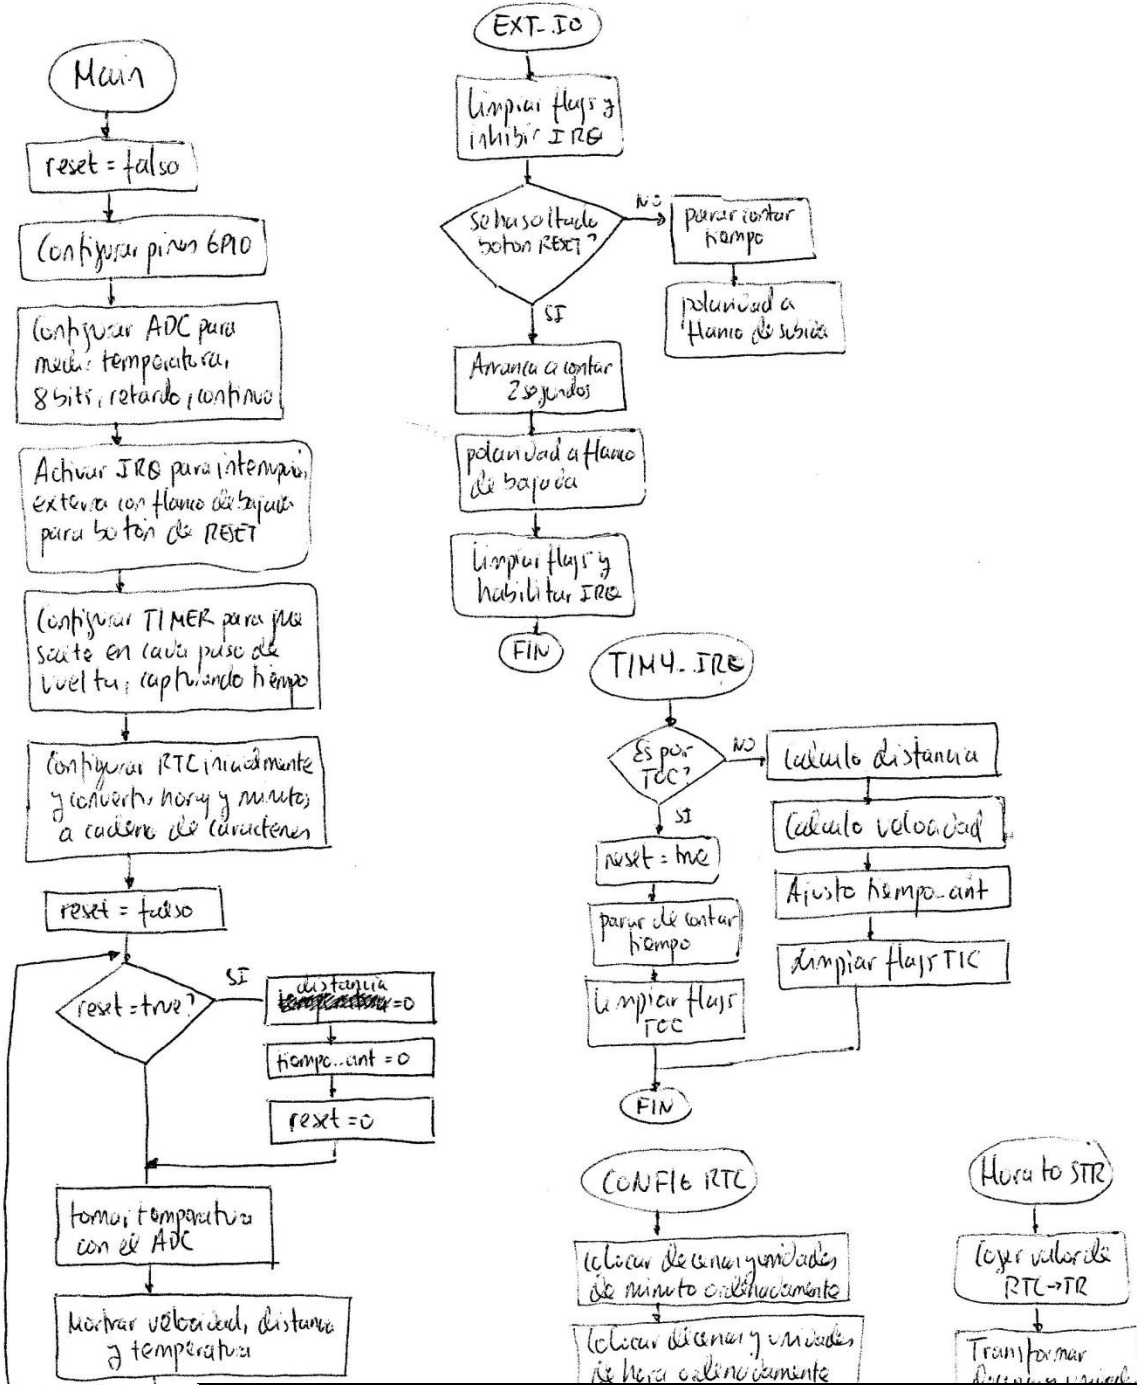 Main
reset = falso
Configurar pines GPIO
Configurar ADC para
medir temperatura,
8 bits, retardo, continuo
Activar IRQ para interrupción
externa con flanco de bajada
para botón de RESET
Configurar TIMER para que
salte en cada paso de
vuelta, capturando tiempo
Configurar RTC inicialmente
y convertir horas y minutos
a cadena de caracteres
reset = falso
reset = true?
SI
distancia
=0
tiempo_ant = 0
reset = 0
tomar temperatura
con el ADC
Mostrar velocidad, distancia
y temperatura
EXT_I0
Limpiar flags y
inhibir IRQ
Se ha soltado
botón RESET?
NO
parar contar
tiempo
polaridad a
flanco de subida
SI
Arranca a contar
2 segundos
polaridad a flanco
de bajada
Limpiar flags y
habilitar IRQ
FIN
TIM4_IRQ
Es por
TOC?
NO
Calculo distancia
Calculo velocidad
Ajusto tiempo_ant
Limpiar flags TIC
SI
reset = true
parar de contar
tiempo
Limpiar flags
TOC
FIN
CONFIG RTC
Colocar decenas y unidades
de minuto ordenadamente
Colocar decenas y unidades
de hora ordenadamente
Hora to STR
Coger valor de
RTC->TR
Transformar